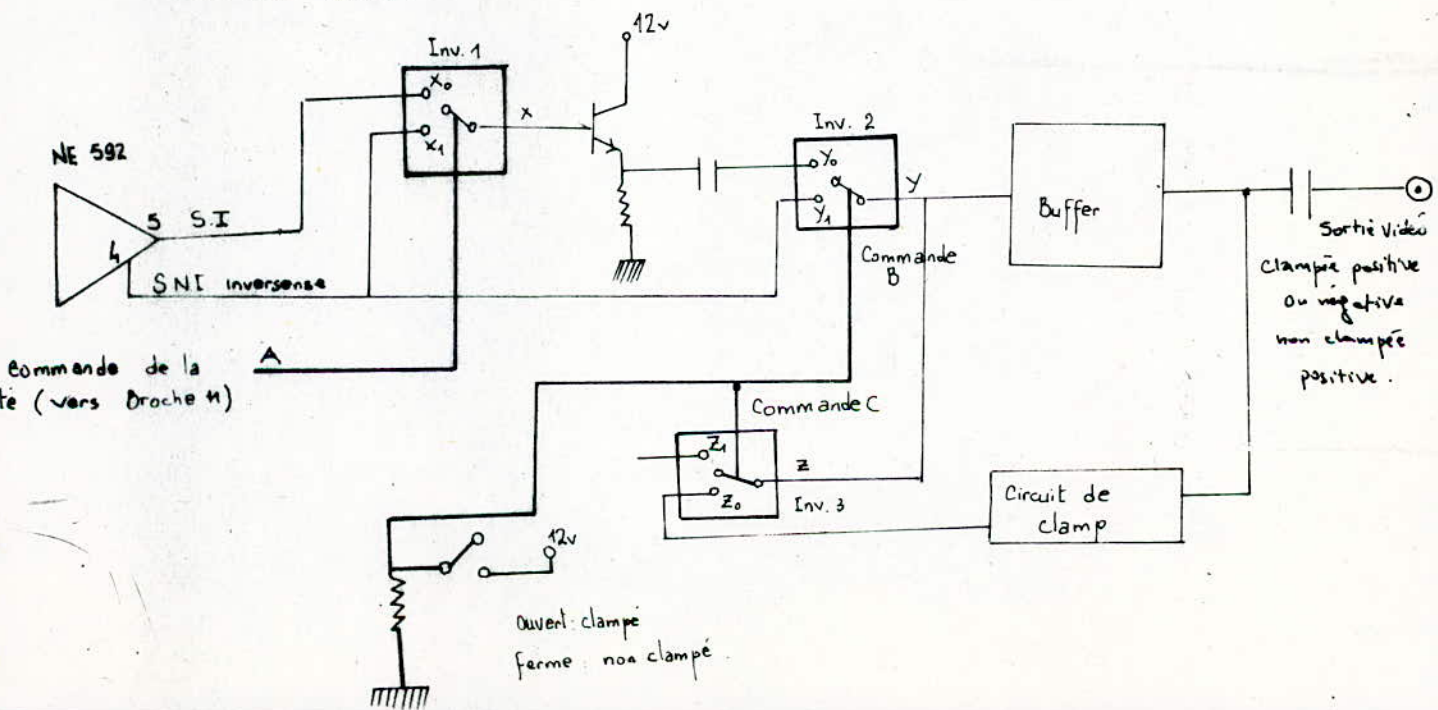 12v
Inv. 1
x₀
x₁
x
NE 592
5
S.I
4
SNI inversense
Commande de la
té (vers Broche 11)
A
Inv. 2
Y₀
Y₁
Y
Commande
B
Buffer
Sortie Vidéo
Clampée positive
ou négative
non clampée
positive.
Commande C
Z₁
Z
Z₀
Inv. 3
Circuit de
clamp
12v
Ouvert: clampé
fermé: non clampé.